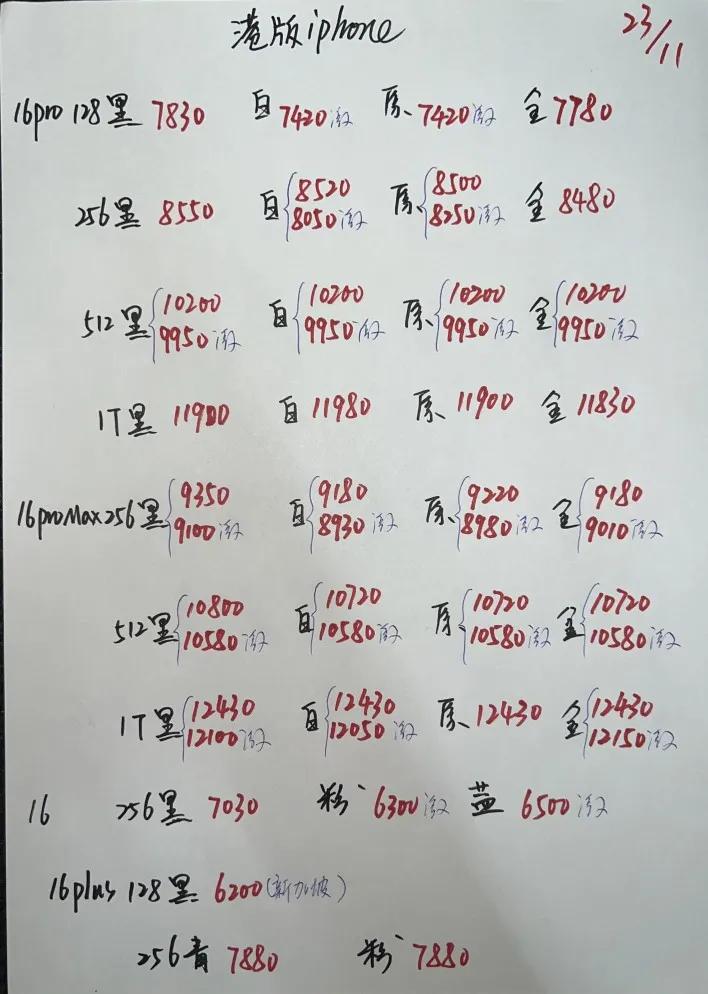 港版iphone
23/11
16pro 128黑 7830 白 7420激 原 7420激 金 7780
256黑 8550 白 8520 8050激 原 8500 8250激 金 8480
512黑 10200 9950激 白 10200 9950激 原 10200 9950激 金 10200 9950激
1T黑 11900 白 11980 原 11900 金 11830
16proMax256黑 9350 9100激 白 9180 8930激 原 9220 8980激 金 9180 9010激
512黑 10800 10580激 白 10720 10580激 原 10720 10580激 金 10720 10580激
1T黑 12430 12100激 白 12430 12050激 原 12430 金 12430 12150激
16 256黑 7030 粉 6300激 蓝 6500激
16plus 128黑 6200(新加坡)
256青 7880 粉 7880